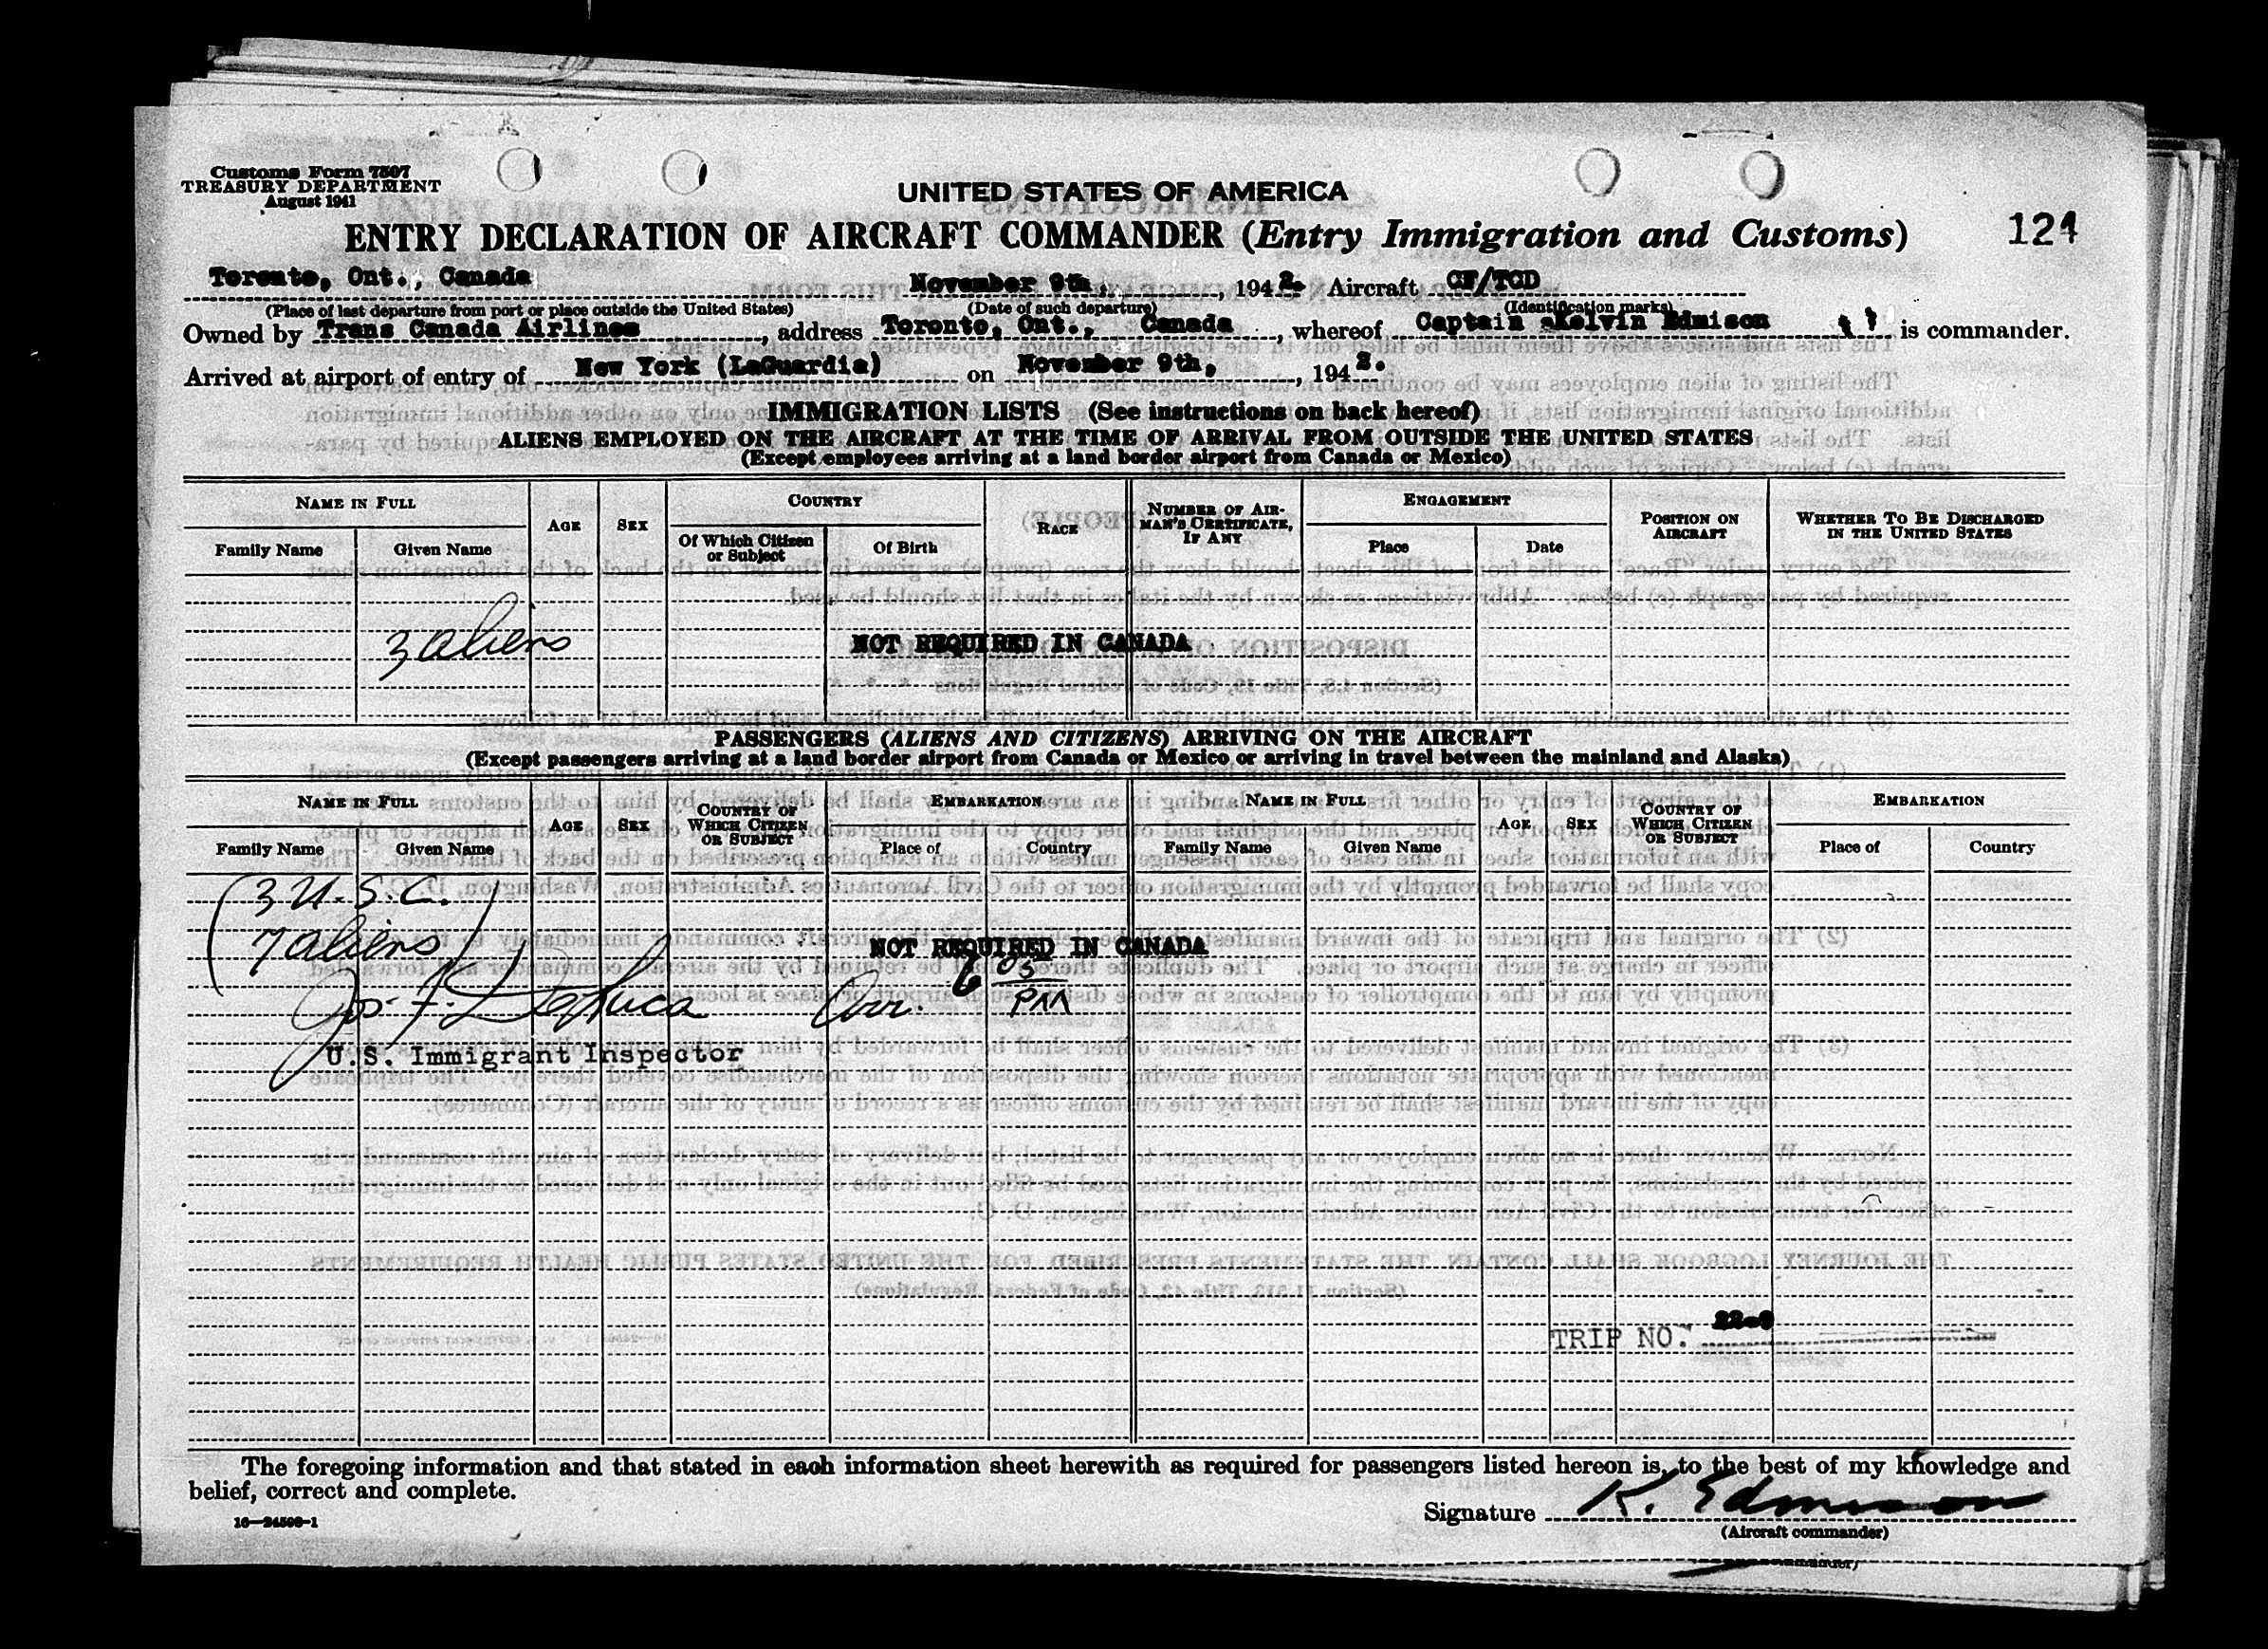 Customs Form 7507
TREASURY DEPARTMENT
August 1941
UNITED STATES OF AMERICA
ENTRY DECLARATION OF AIRCRAFT COMMANDER (Entry Immigration and Customs)
124
Toronto, Ont., Canada November 9th, , 1942. Aircraft CF/TCD
(Place of last departure from port or place outside the United States) (Date of such departure) (Identification marks)
Owned by Trans Canada Airlines, address Toronto, Ont., Canada, whereof Captain Kelvin Edmison is commander.
Arrived at airport of entry of New York (LaGuardia) on November 9th, , 1942.
IMMIGRATION LISTS (See instructions on back hereof)
ALIENS EMPLOYED ON THE AIRCRAFT AT THE TIME OF ARRIVAL FROM OUTSIDE THE UNITED STATES
(Except employees arriving at a land border airport from Canada or Mexico)
NAME IN FULL
Family Name
Given Name
AGE
SEX
COUNTRY
Of Which Citizen or Subject
Of Birth
RACE
NUMBER OF AIRMAN'S CERTIFICATE, IF ANY
ENGAGEMENT
Place
Date
POSITION ON AIRCRAFT
WHETHER TO BE DISCHARGED IN THE UNITED STATES
3 aliens
NOT REQUIRED IN CANADA
PASSENGERS (ALIENS AND CITIZENS) ARRIVING ON THE AIRCRAFT
(Except passengers arriving at a land border airport from Canada or Mexico or arriving in travel between the mainland and Alaska)
NAME IN FULL
Family Name
Given Name
AGE
SEX
COUNTRY OF WHICH CITIZEN OR SUBJECT
EMBARKATION
Place of
Country
NAME IN FULL
Family Name
Given Name
AGE
SEX
COUNTRY OF WHICH CITIZEN OR SUBJECT
EMBARKATION
Place of
Country
3 U.S.C.
7 aliens
NOT REQUIRED IN CANADA
Arr. 6 05 PM
U.S. Immigrant Inspector
TRIP NO.
The foregoing information and that stated in each information sheet herewith as required for passengers listed hereon is, to the best of my knowledge and
belief, correct and complete.
Signature K. Edmison
(Aircraft commander)
16—24508-1